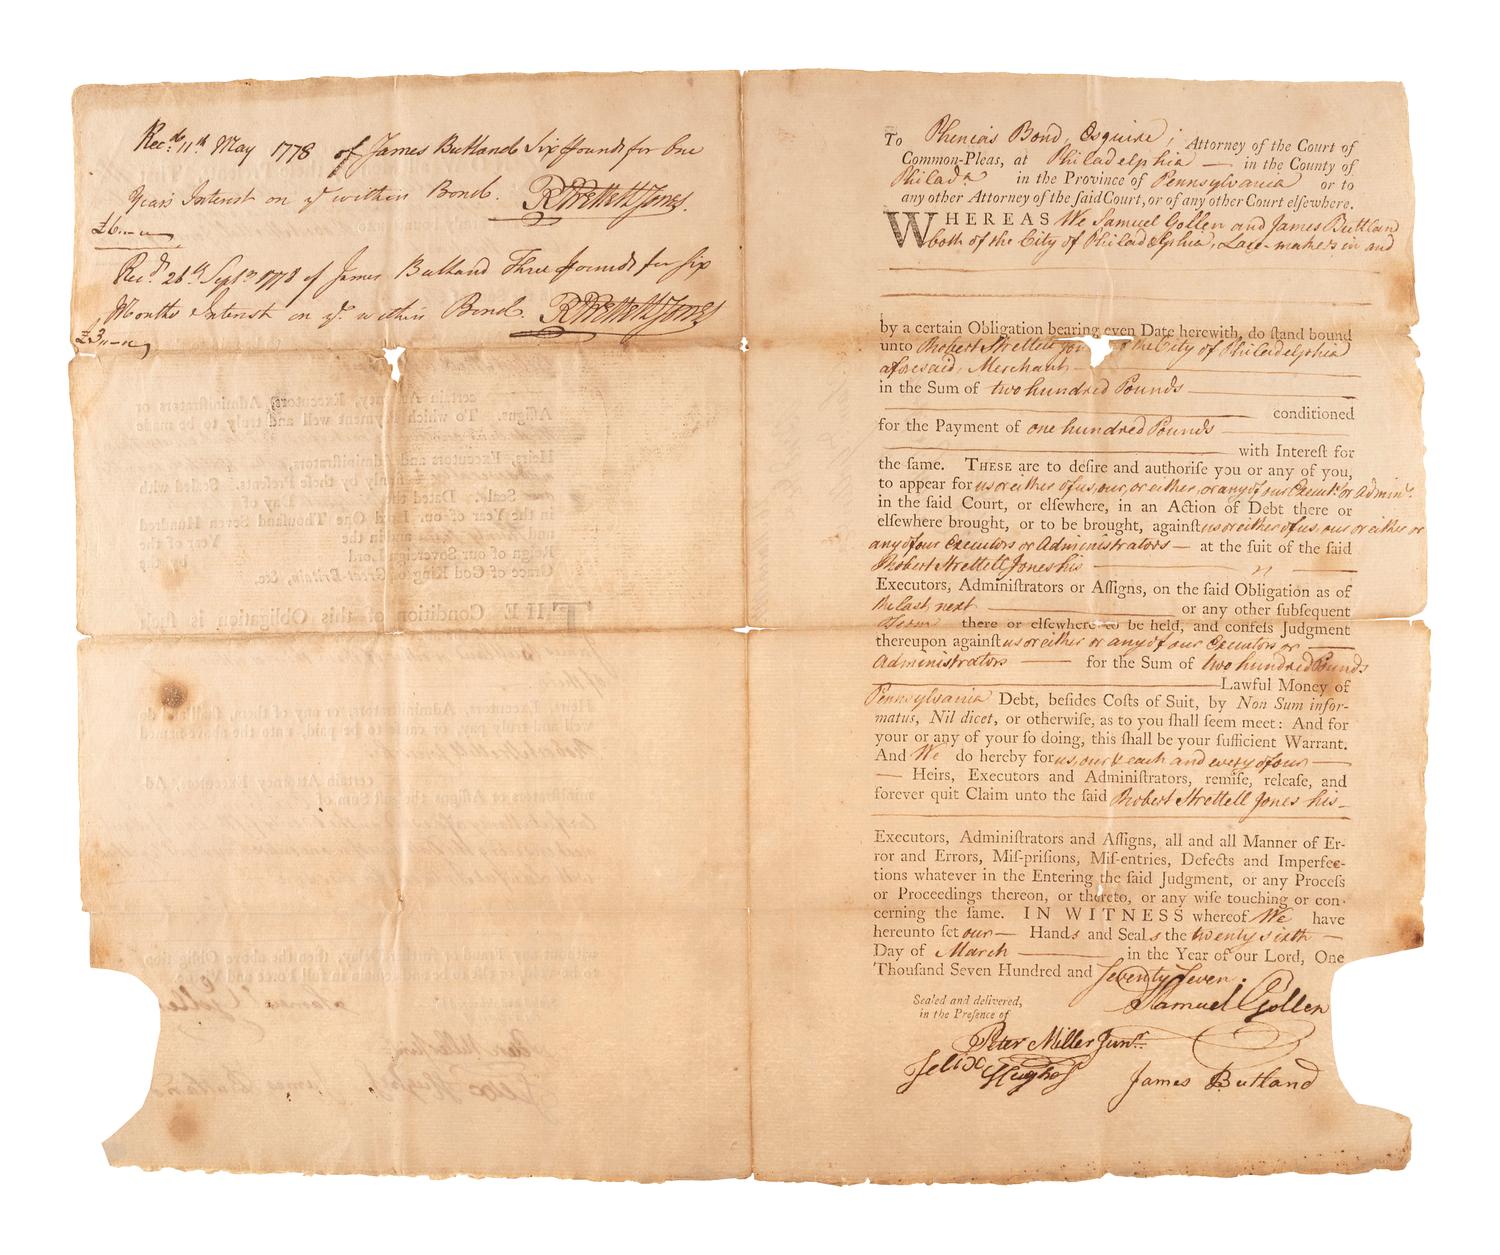 Recd. 11th May 1778 of James Butland Six Pounds for One
Years Interest on ye within Bond. RStrettell Jones.
£6.—
Recd. 26th Septr. 1778 of James Butland Three Pounds for Six
Months Interest on ye within Bond. RStrettell Jones
£3.—
To Pheneas Bond, Esquire; Attorney of the Court of
Common-Pleas, at Philadelphia — in the County of
Philada. in the Province of Pennsylvania or to
any other Attorney of the ſaid Court, or of any other Court elſewhere.
WHEREAS We Samuel Gollen and James Buttland
both of the City of Philadelphia, Lace-makers in and
by a certain Obligation bearing even Date herewith, do ſtand bound
unto Robert Strettell the City of Philadelphia
aforesaid, Merchant
in the Sum of two hundred Pounds
conditioned
for the Payment of one hundred Pounds
with Intereſt for
the ſame. THESE are to deſire and authoriſe you or any of you,
to appear for us or either of us, our, or either, or any of our Execut.s or Admin.s
in the ſaid Court, or elſewhere, in an Action of Debt there or
elſewhere brought, or to be brought, againſt us or either of us, our or either or
any of our Executors or Administrators — at the ſuit of the ſaid
Robert Strettell Jones his
Executors, Adminiſtrators or Aſſigns, on the ſaid Obligation as of
the last, next or any other ſubſequent
Term there or elſewhere to be held, and confeſs Judgment
thereupon againſt us or either or any of our Executors or
Administrators — for the Sum of two hundred Pounds
Lawful Money of
Pennsylvania Debt, beſides Coſts of Suit, by Non Sum infor-
matus, Nil dicet, or otherwiſe, as to you ſhall ſeem meet: And for
your or any of your ſo doing, this ſhall be your ſufficient Warrant.
And We do hereby for us, our & each and every of our —
— Heirs, Executors and Adminiſtrators, remiſe, releaſe, and
forever quit Claim unto the ſaid Robert Strettell Jones his —
Executors, Adminiſtrators and Aſſigns, all and all Manner of Er-
ror and Errors, Miſ-priſions, Miſ-entries, Defects and Imperfec-
tions whatever in the Entering the ſaid Judgment, or any Proceſs
or Proceedings thereon, or thereto, or any wiſe touching or con-
cerning the ſame. IN WITNESS whereof We have
hereunto ſet our — Hands and Seals the twenty sixth —
Day of March — in the Year of our Lord, One
Thouſand Seven Hundred and Seventy Seven.
Samuel Gollen
Sealed and delivered,
in the Preſence of
Peter Miller Junr.
Felix Hughes
James Butland